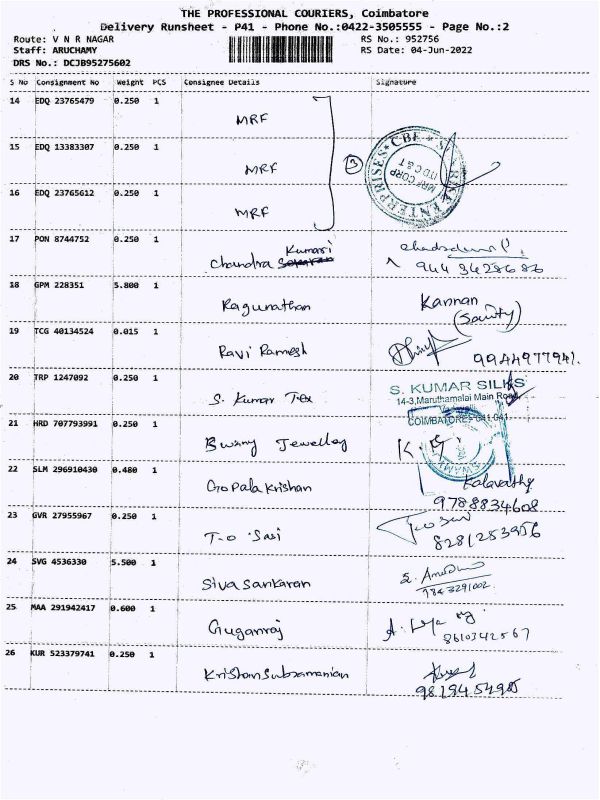 THE PROFESSIONAL COURIERS, Coimbatore
Delivery Runsheet - P41 - Phone No.:0422-3505555 - Page No.:2
Route: V N R NAGAR RS No.: 952756
Staff: ARUCHAMY RS Date: 04-Jun-2022
DRS No.: DCJB95275602
S No Consignment No Weight PCS Consignee Details Signature
14 EDQ 23765479 0.250 1 MRF
15 EDQ 13383307 0.250 1 MRF
3
CBE
ENTERPRISES
MRF CORP
LTD C & T
16 EDQ 23765612 0.250 1 MRF
17 PON 8744752 0.250 1 Chandra Kumari
18 GPM 228351 5.800 1 Ragunathan Kannan
19 TCG 40134524 0.015 1 Ravi Ramesh 9944977941.
20 TRP 1247092 0.250 1 S. Kumar Tex S. KUMAR SILKS
14-3, Maruthamalai Main Road
COIMBATORE - 641 041
21 HRD 707793991 0.250 1 Bwamy Jewelley
22 SLM 296910430 0.480 1 Gopala Krishan Kalavathy
9788834608
23 GVR 27955967 0.250 1 T-o Sasi
8281253956
24 SVG 4536330 5.500 1 Siva Sankaran
9843291002
25 MAA 291942417 0.600 1 Guganraj
8610342567
26 KUR 523379741 0.250 1 Krishan Subramanian